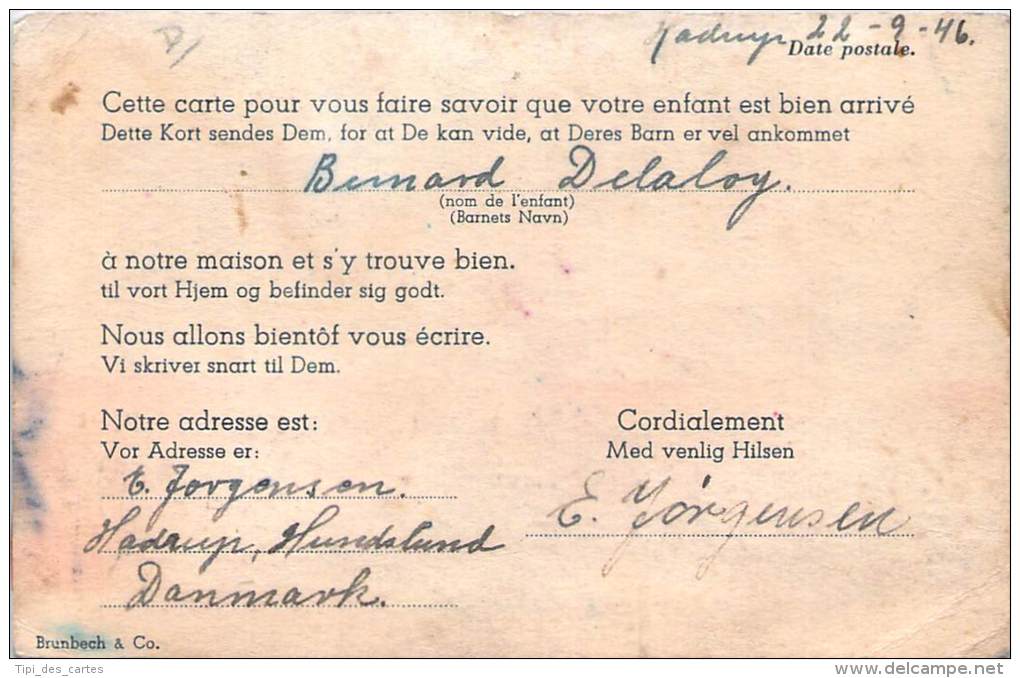 Hadrup 22-9-46.
Date postale.
Cette carte pour vous faire savoir que votre enfant est bien arrivé
Dette Kort sendes Dem, for at De kan vide, at Deres Barn er vel ankommet
Bernard Delaloy.
(nom de l'enfant)
(Barnets Navn)
à notre maison et s'y trouve bien.
til vort Hjem og befinder sig godt.
Nous allons bientôt vous écrire.
Vi skriver snart til Dem.
Notre adresse est:
Vor Adresse er:
E. Jorgensen.
Hadrup, Hundslund
Danmark.
Cordialement
Med venlig Hilsen
E. Jörgensen
Brunbech & Co.
Tipi_des_cartes
www.delcampe.net